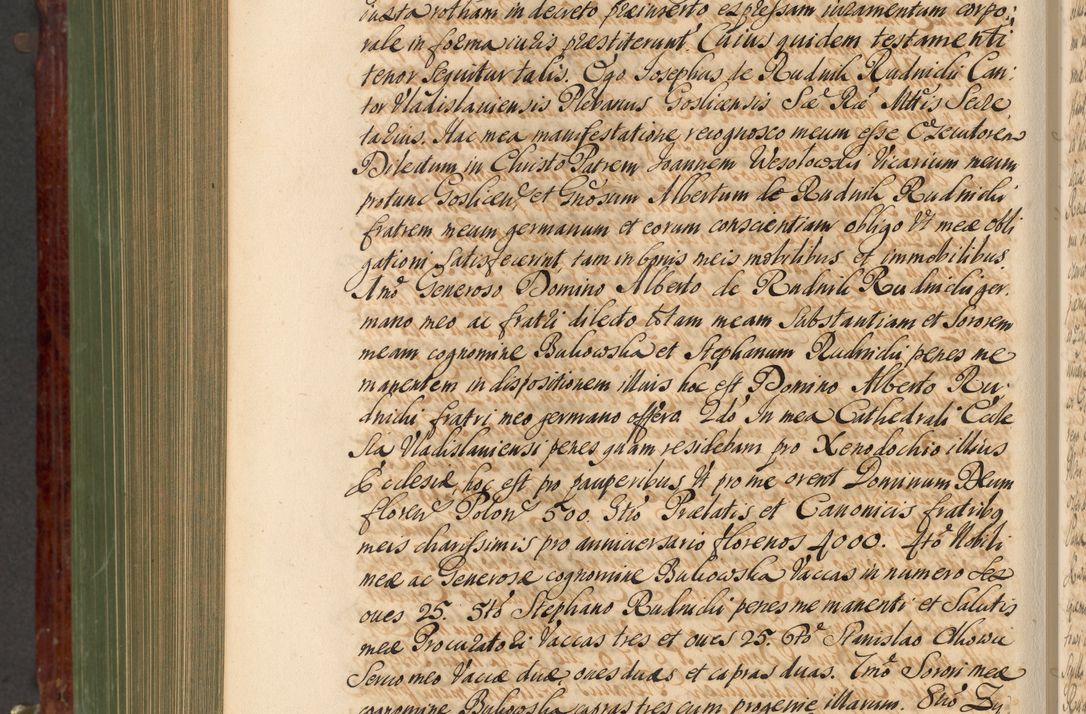 iuxta rotham in decreto præinserto expressam iuramentum corpo:
rale in forma iuris præstiterunt. Cuius quidem testamenti
tenor sequitur talis. Ego Josephus de Rudnik Rudnicki Can:
tor Vladislaviensis Plebanus Goslicensis Sæ Ræ Mttis Secre
tarius. Hac mea manifestatione recognosco meum esse Executorem
Dilectum in Christo Patrem Joannem Wesołowski Vicarium meum
protunc Goslicen, et Gnosum Albertum de Rudnik Rudnicki
fratrem meum germanum et eorum conscientiam obligo Vt meæ obli
gationi satisfecerint, tam in bonis meis mobilibus et immobilibus
1mo Generoso Domino Alberto de Rudnik Rudnicki ger.
mano meo ac fratri dilecto totam meam substantiam et Sororem
meam cognomine Bukowska et Stephanum Rudnicki penes me
manentem in dispositionem illius hoc est Domino Alberto Ru,
dnicki fratri meo germano offero 2do In mea Cathedrali Eccle
sia Vladislaviensi penes quam residebam pro Xenodochio illius
Ecclesiæ, hoc est pro pauperibus Vt pro me orent Dominum Deum
floren Polon 500. 3tio Prælatis et Canonicis fratribq
meis charissimis pro anniversario florenos 4000. 4to Nobili
meæ ac Generosæ cognomine Bukowska Vaccas in numero
oues 25. 5to Stephano Rudnicki penes me manenti et Salutis
meæ Procuratori Vaccas tres et oues 25. 6to Stanislao
Seruo meo Vaccæ duæ oues duas et capras duas. 7mo Sorori meæ
cognomine Bukowska capras tres cum progenie illarum. 8uo